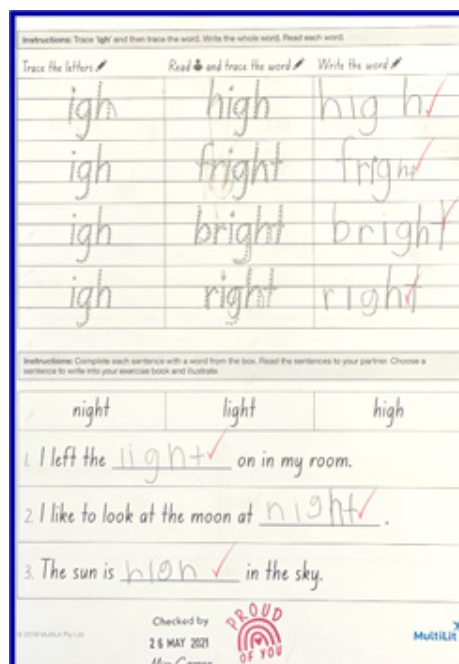 Instructions: Trace 'igh' and then trace the word. Write the whole word. Read each word.
Trace the letters Read and trace the word Write the word
igh high high
igh fright fright
igh bright bright
igh right right
Instructions: Complete each sentence with a word from the box. Read the sentences to your partner. Choose a
sentence to write into your exercise book and illustrate.
night light high
1. I left the light on in my room.
2. I like to look at the moon at night.
3. The sun is high in the sky.
Checked by
26 MAY 2021
PROUD
OF YOU
MultiLit